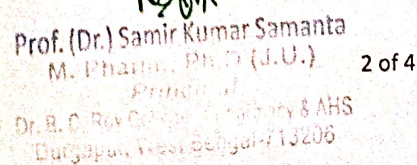 Prof. (Dr.) Samir Kumar Samanta
M. Pharm., Ph.D (J.U.)
2 of 4
Principal
Dr. B. C. Roy & AHS
Durgapur, West Bengal-713206